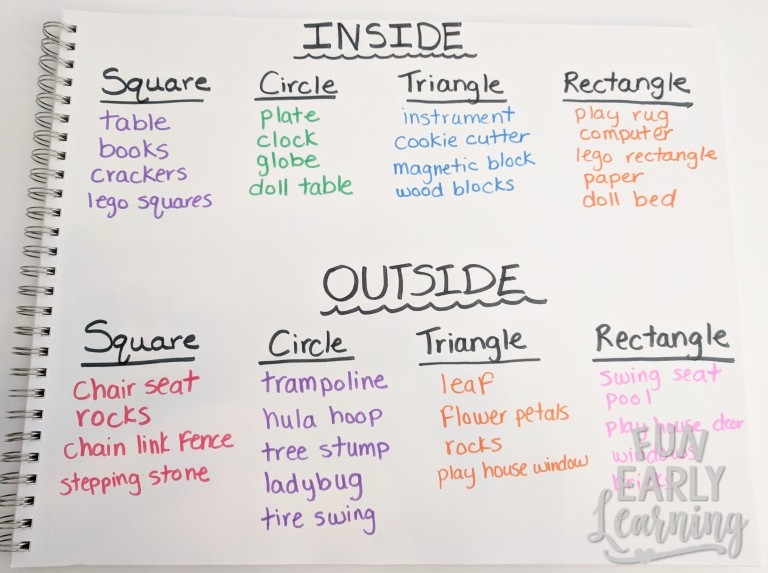 INSIDE
Square
table
books
crackers
lego squares
Circle
plate
clock
globe
doll table
Triangle
instrument
cookie cutter
magnetic block
wood blocks
Rectangle
play rug
computer
lego rectangle
paper
doll bed
OUTSIDE
Square
Chair seat
rocks
chain link fence
stepping stone
Circle
trampoline
hula hoop
tree stump
ladybug
tire swing
Triangle
leaf
flower petals
rocks
play house window
Rectangle
Swing seat
pool
play house door
windows
bricks
FUN
EARLY
Learning